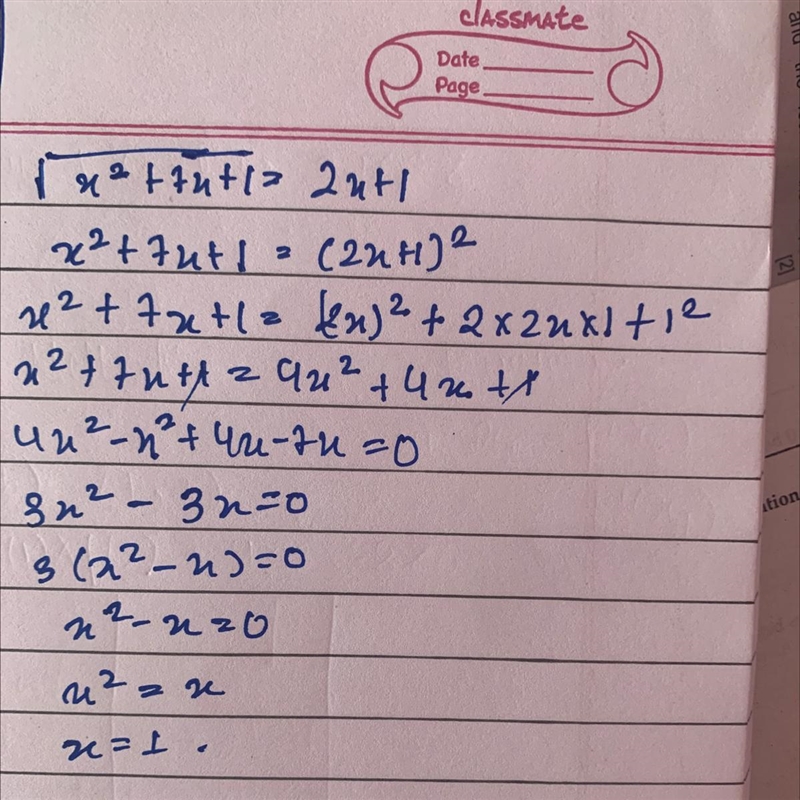 classmate
Date
Page
√(x² + 7x + 1) = 2x + 1
x² + 7x + 1 = (2x + 1)²
x² + 7x + 1 = (2x)² + 2 × 2x × 1 + 1²
x² + 7x + 1 = 4x² + 4x + 1
4x² - x² + 4x - 7x = 0
3x² - 3x = 0
3(x² - x) = 0
x² - x = 0
x² = x
x = 1 .
[2]